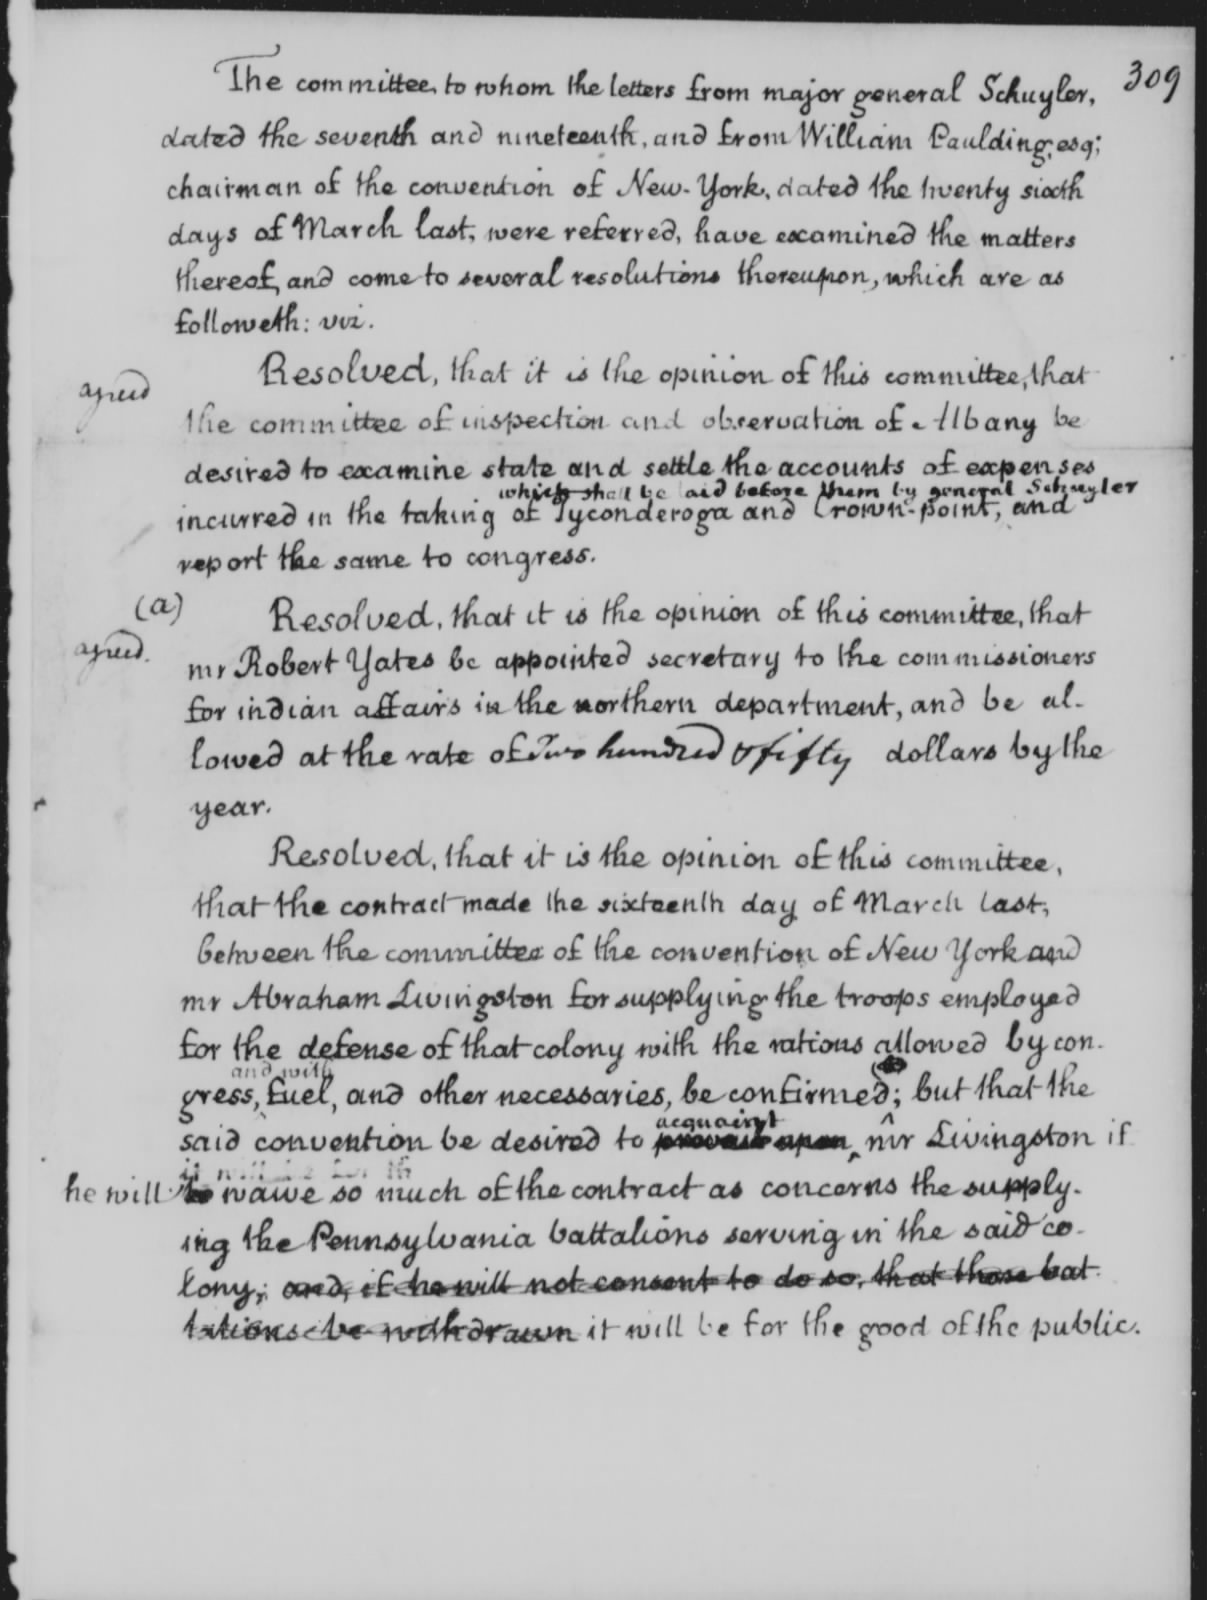 309
The committee, to whom the letters from major general Schuyler,
dated the seventh and nineteenth, and from William Paulding, esq;
chairman of the convention of New-York, dated the twenty sixth
days of March last, were referred, have examined the matters
thereof, and come to several resolutions thereupon, which are as
followeth: viz.
agreed
Resolved, that it is the opinion of this committee, that
the committee of inspection and observation of Albany be
desired to examine state and settle the accounts of expenses
which shall be laid before them by general Schuyler
incurred in the taking of Tyconderoga and Crown-point, and
report the same to congress.
(a)
agreed.
Resolved, that it is the opinion of this committee, that
mr Robert Yates be appointed secretary to the commissioners
for indian affairs in the northern department, and be al-
lowed at the rate of Two hundred & fifty dollars by the
year.
Resolved, that it is the opinion of this committee,
that the contract made the sixteenth day of March last,
between the committee of the convention of New York and
mr Abraham Livingston for supplying the troops employed
for the defense of that colony with the rations allowed by con-
and with
gress, fuel, and other necessaries, be confirmed; but that the
acquaint
said convention be desired to prevail upon mr Livingston if
it will be for th
he will to waive so much of the contract as concerns the supply-
ing the Pennsylvania battalions serving in the said co-
lony; and, if he will not consent to do so, that those bat
talions be withdrawn it will be for the good of the public.